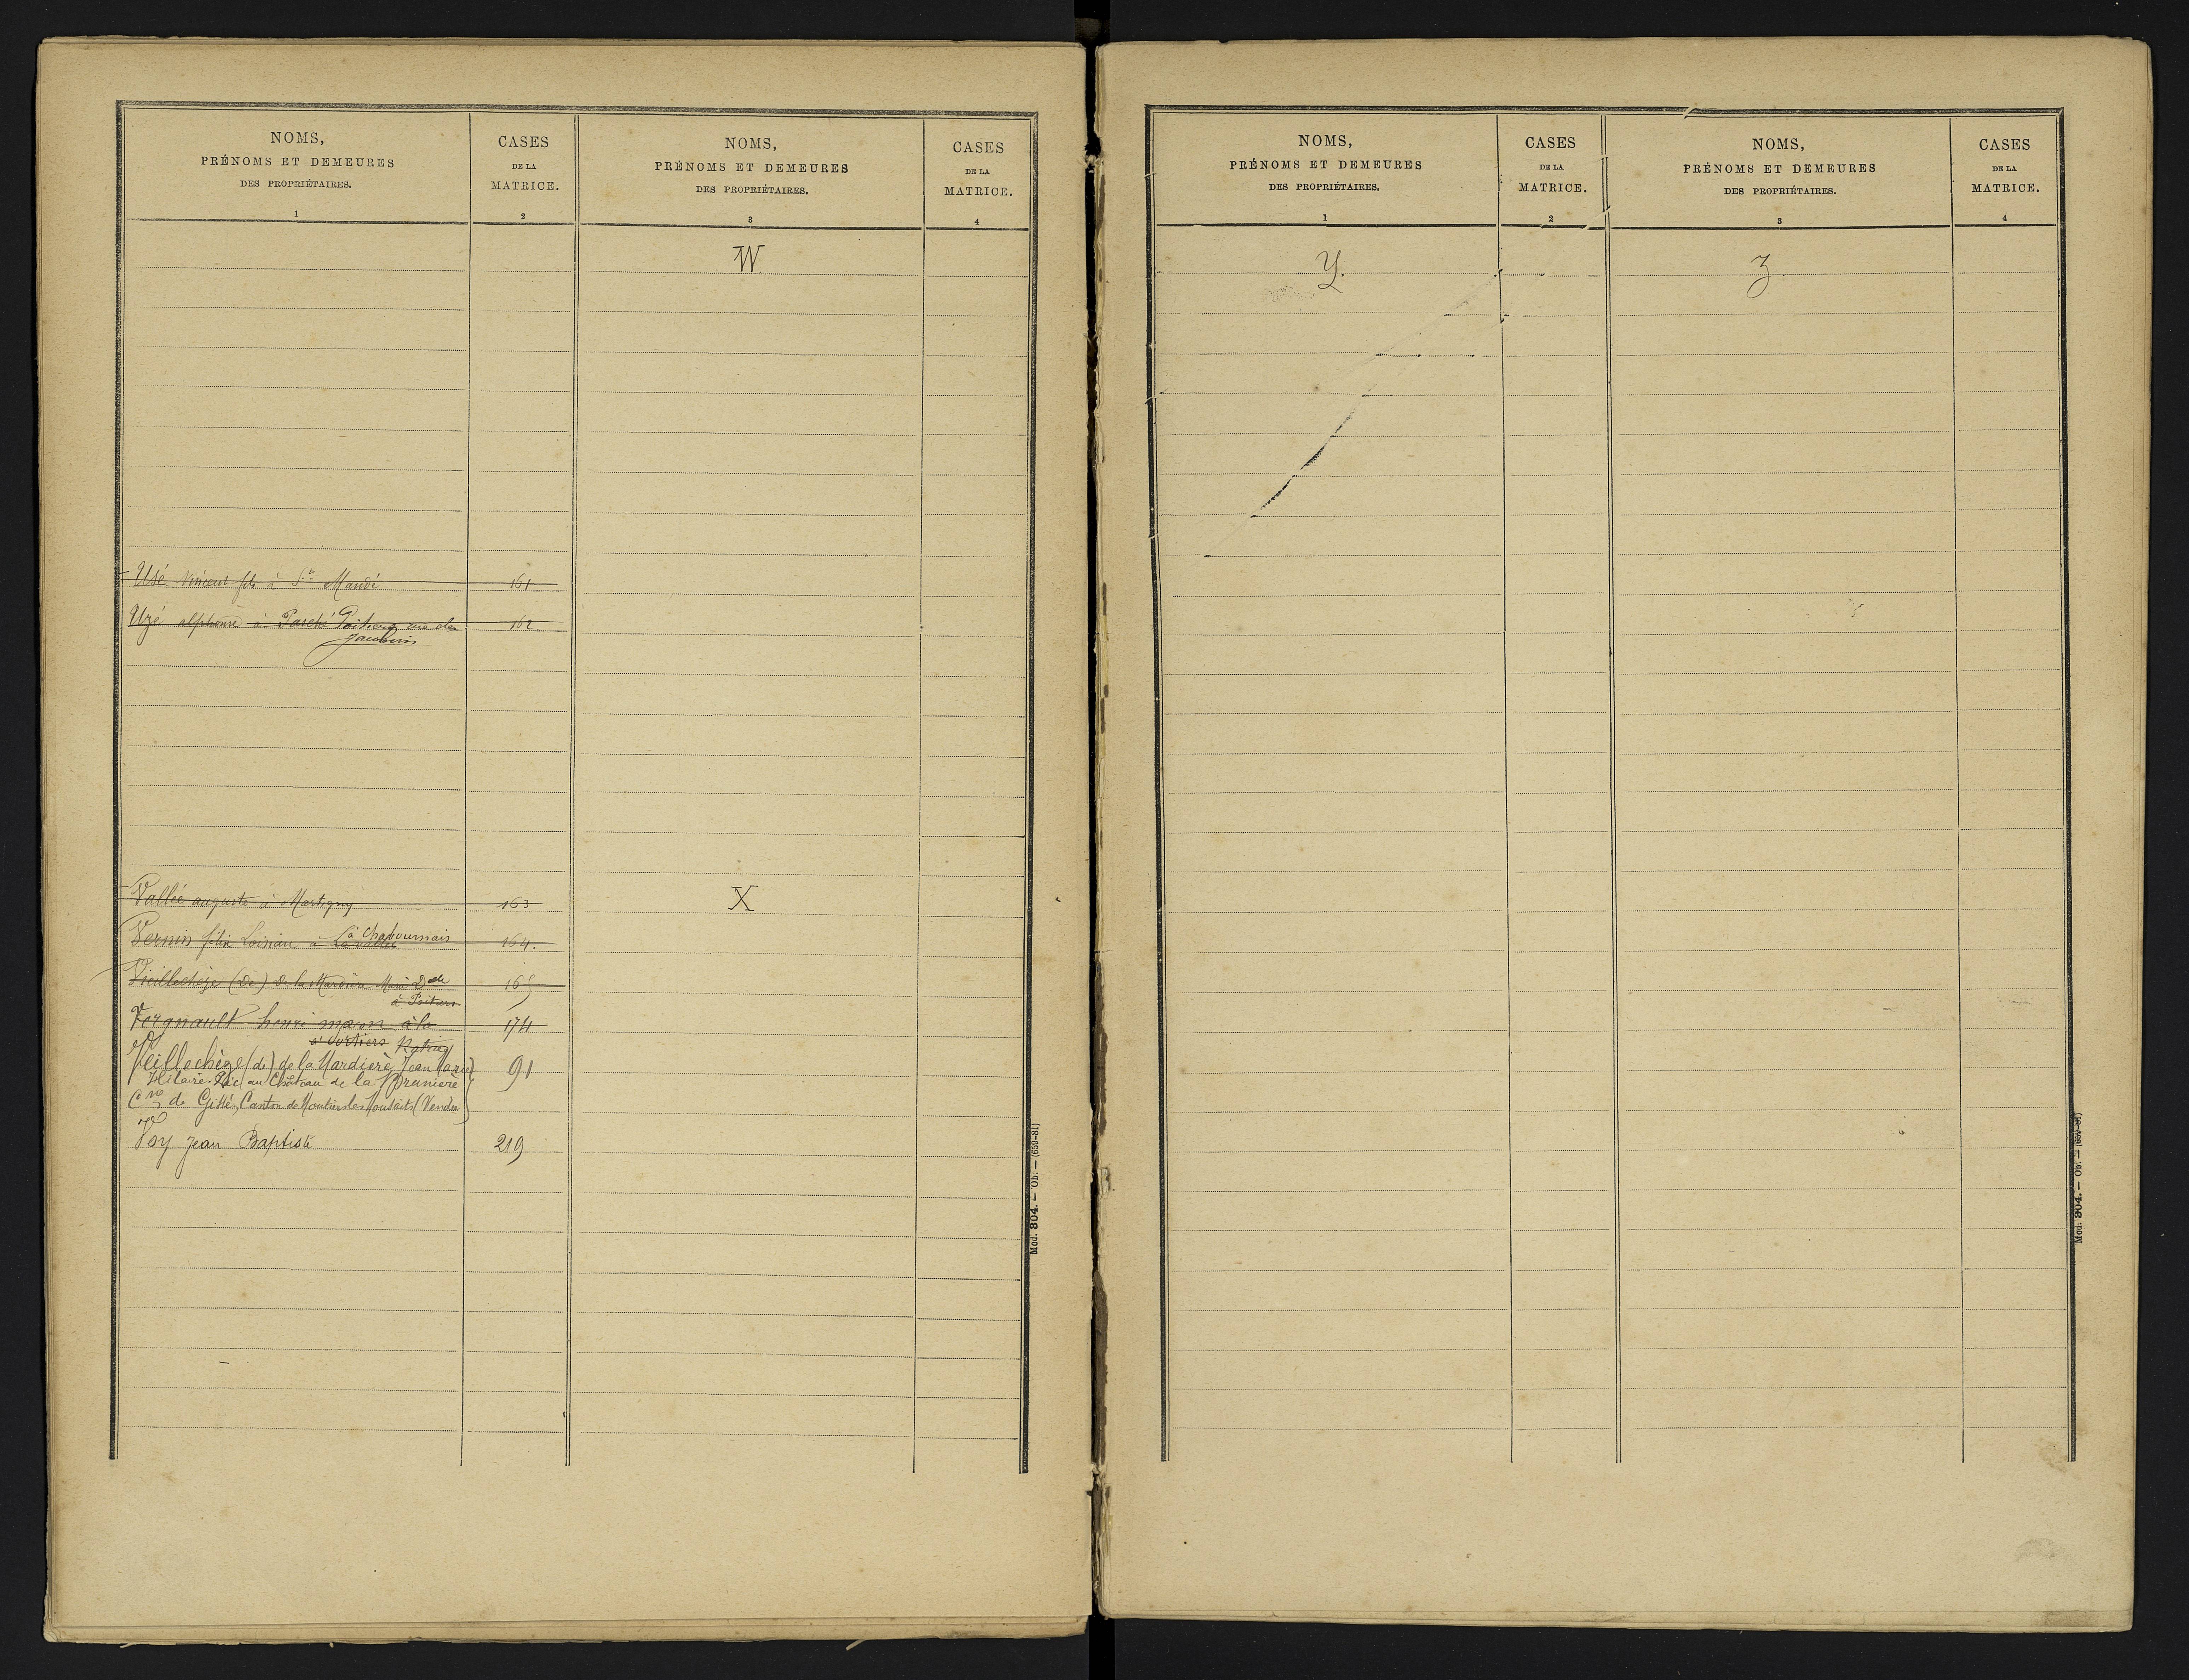 NOMS,
PRÉNOMS ET DEMEURES
DES PROPRIÉTAIRES.
1
CASES
DE LA
MATRICE.
2
NOMS,
PRÉNOMS ET DEMEURES
DES PROPRIÉTAIRES.
3
CASES
DE LA
MATRICE.
4
W
Usé Vincent fils à St Mandé 161
Uzé alphonse à Parché Poitiers rue des 162
Jacobins
Vallée auguste à Martigny 163
X
à Chabournais
Vernin félix Loisiau à La vallée 164.
Vieillechèze (de) de la Mardière Marie Dlle 165
à Poitiers
Vergnault henri maçon à la 174
Veillechèze (de) de la Mardière Jean Marie 91
Hilaire Luc au Château de la Brunière
Cne de Gitté, Canton de Moutiers les Maufaits (Vendée)
Voy Jean Baptiste 219
Mod. 804. — Ob. — (659-81)
NOMS,
PRÉNOMS ET DEMEURES
DES PROPRIÉTAIRES.
1
CASES
DE LA
MATRICE.
2
NOMS,
PRÉNOMS ET DEMEURES
DES PROPRIÉTAIRES.
3
CASES
DE LA
MATRICE.
4
Y.
Z.
Mod. 804. — Ob. — (659-81)